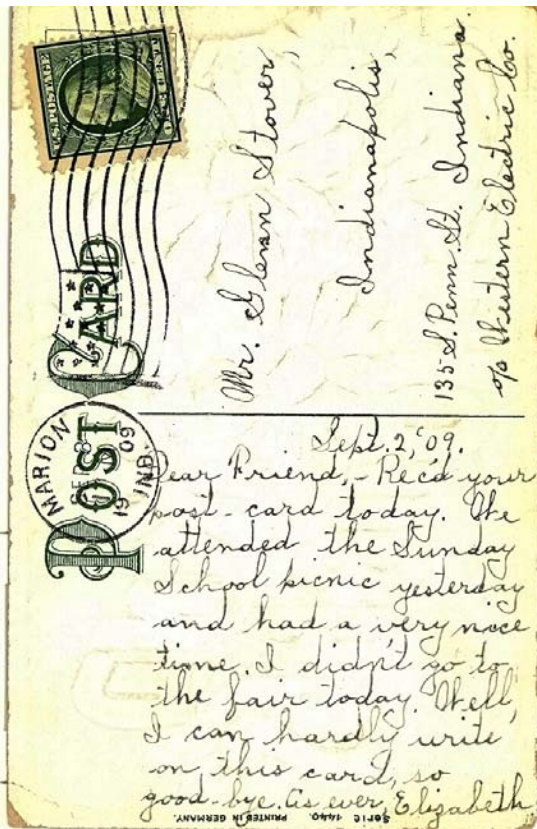 U.S. POSTAGE
POST CARD
MARION
IND.
SEP 3
1909
Mr. Glenn Stover,
Indianapolis,
135 S. Penn. St. Indiana.
c/o Western Electric Co.
Sept. 2, '09.
Dear Friend,- Rec'd your
post-card today. We
attended the Sunday
School picnic yesterday
and had a very nice
time. I didn't go to
the fair today. Well,
I can hardly write
on this card, so
good-bye. As ever, Elizabeth
Serie 1440. PRINTED IN GERMANY.